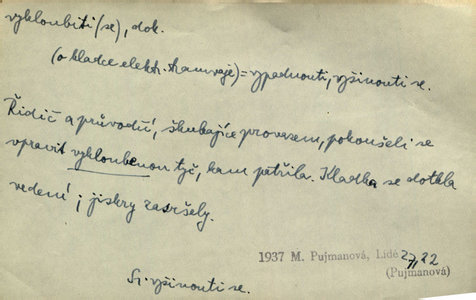 vykloubiti (se), dok.
(o kladce elektr. tramvaje) = vypadnouti, vyšinouti se.
Řidič a průvodčí, škubajíce provazem, pokoušeli se
vpravit vykloubenou tyč, kam patřila. Kladka se dotkla
vedení; jiskry zasršely.
1937 M. Pujmanová, Lidé
(Pujmanová)
Sr. vyšinouti se.